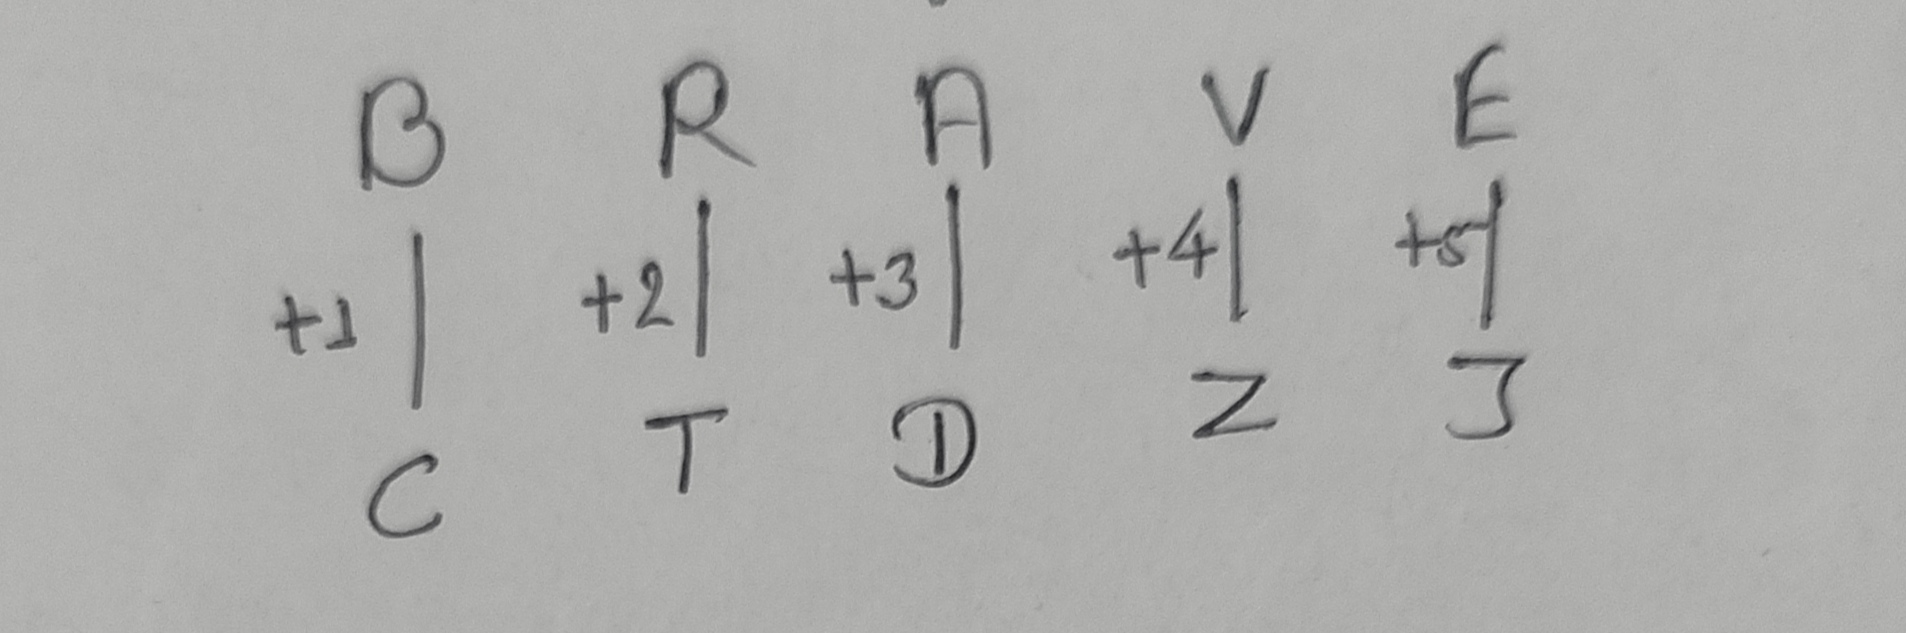 B R A V E
+1 +2 +3 +4 +5
C T D Z J